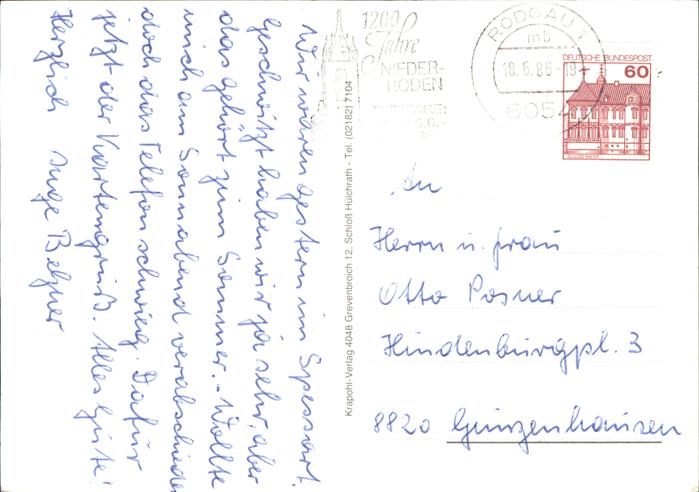 Wir waren gestern im Spessart.
Geschwitzt haben wir ja sehr, aber
das gehört zum Sommer. - Wollte
mich am Sonnabend verabschieden
doch das Telefon schwieg. Dafür
jetzt der Kartengruß. Alles Gute!
Herzlich Inge
Krapohl-Verlag 4048 Grevenbroich 12, Schloß Hülchrath - Tel. (02182) 7104
1200
Jahre
NIEDER-
RODEN
RODGAU 1
mb
18.6.86-19
6054
DEUTSCHE BUNDESPOST
60
An
Herrn u. Frau
Otto Posner
Hindenburgpl. 3
8820 Gunzenhausen